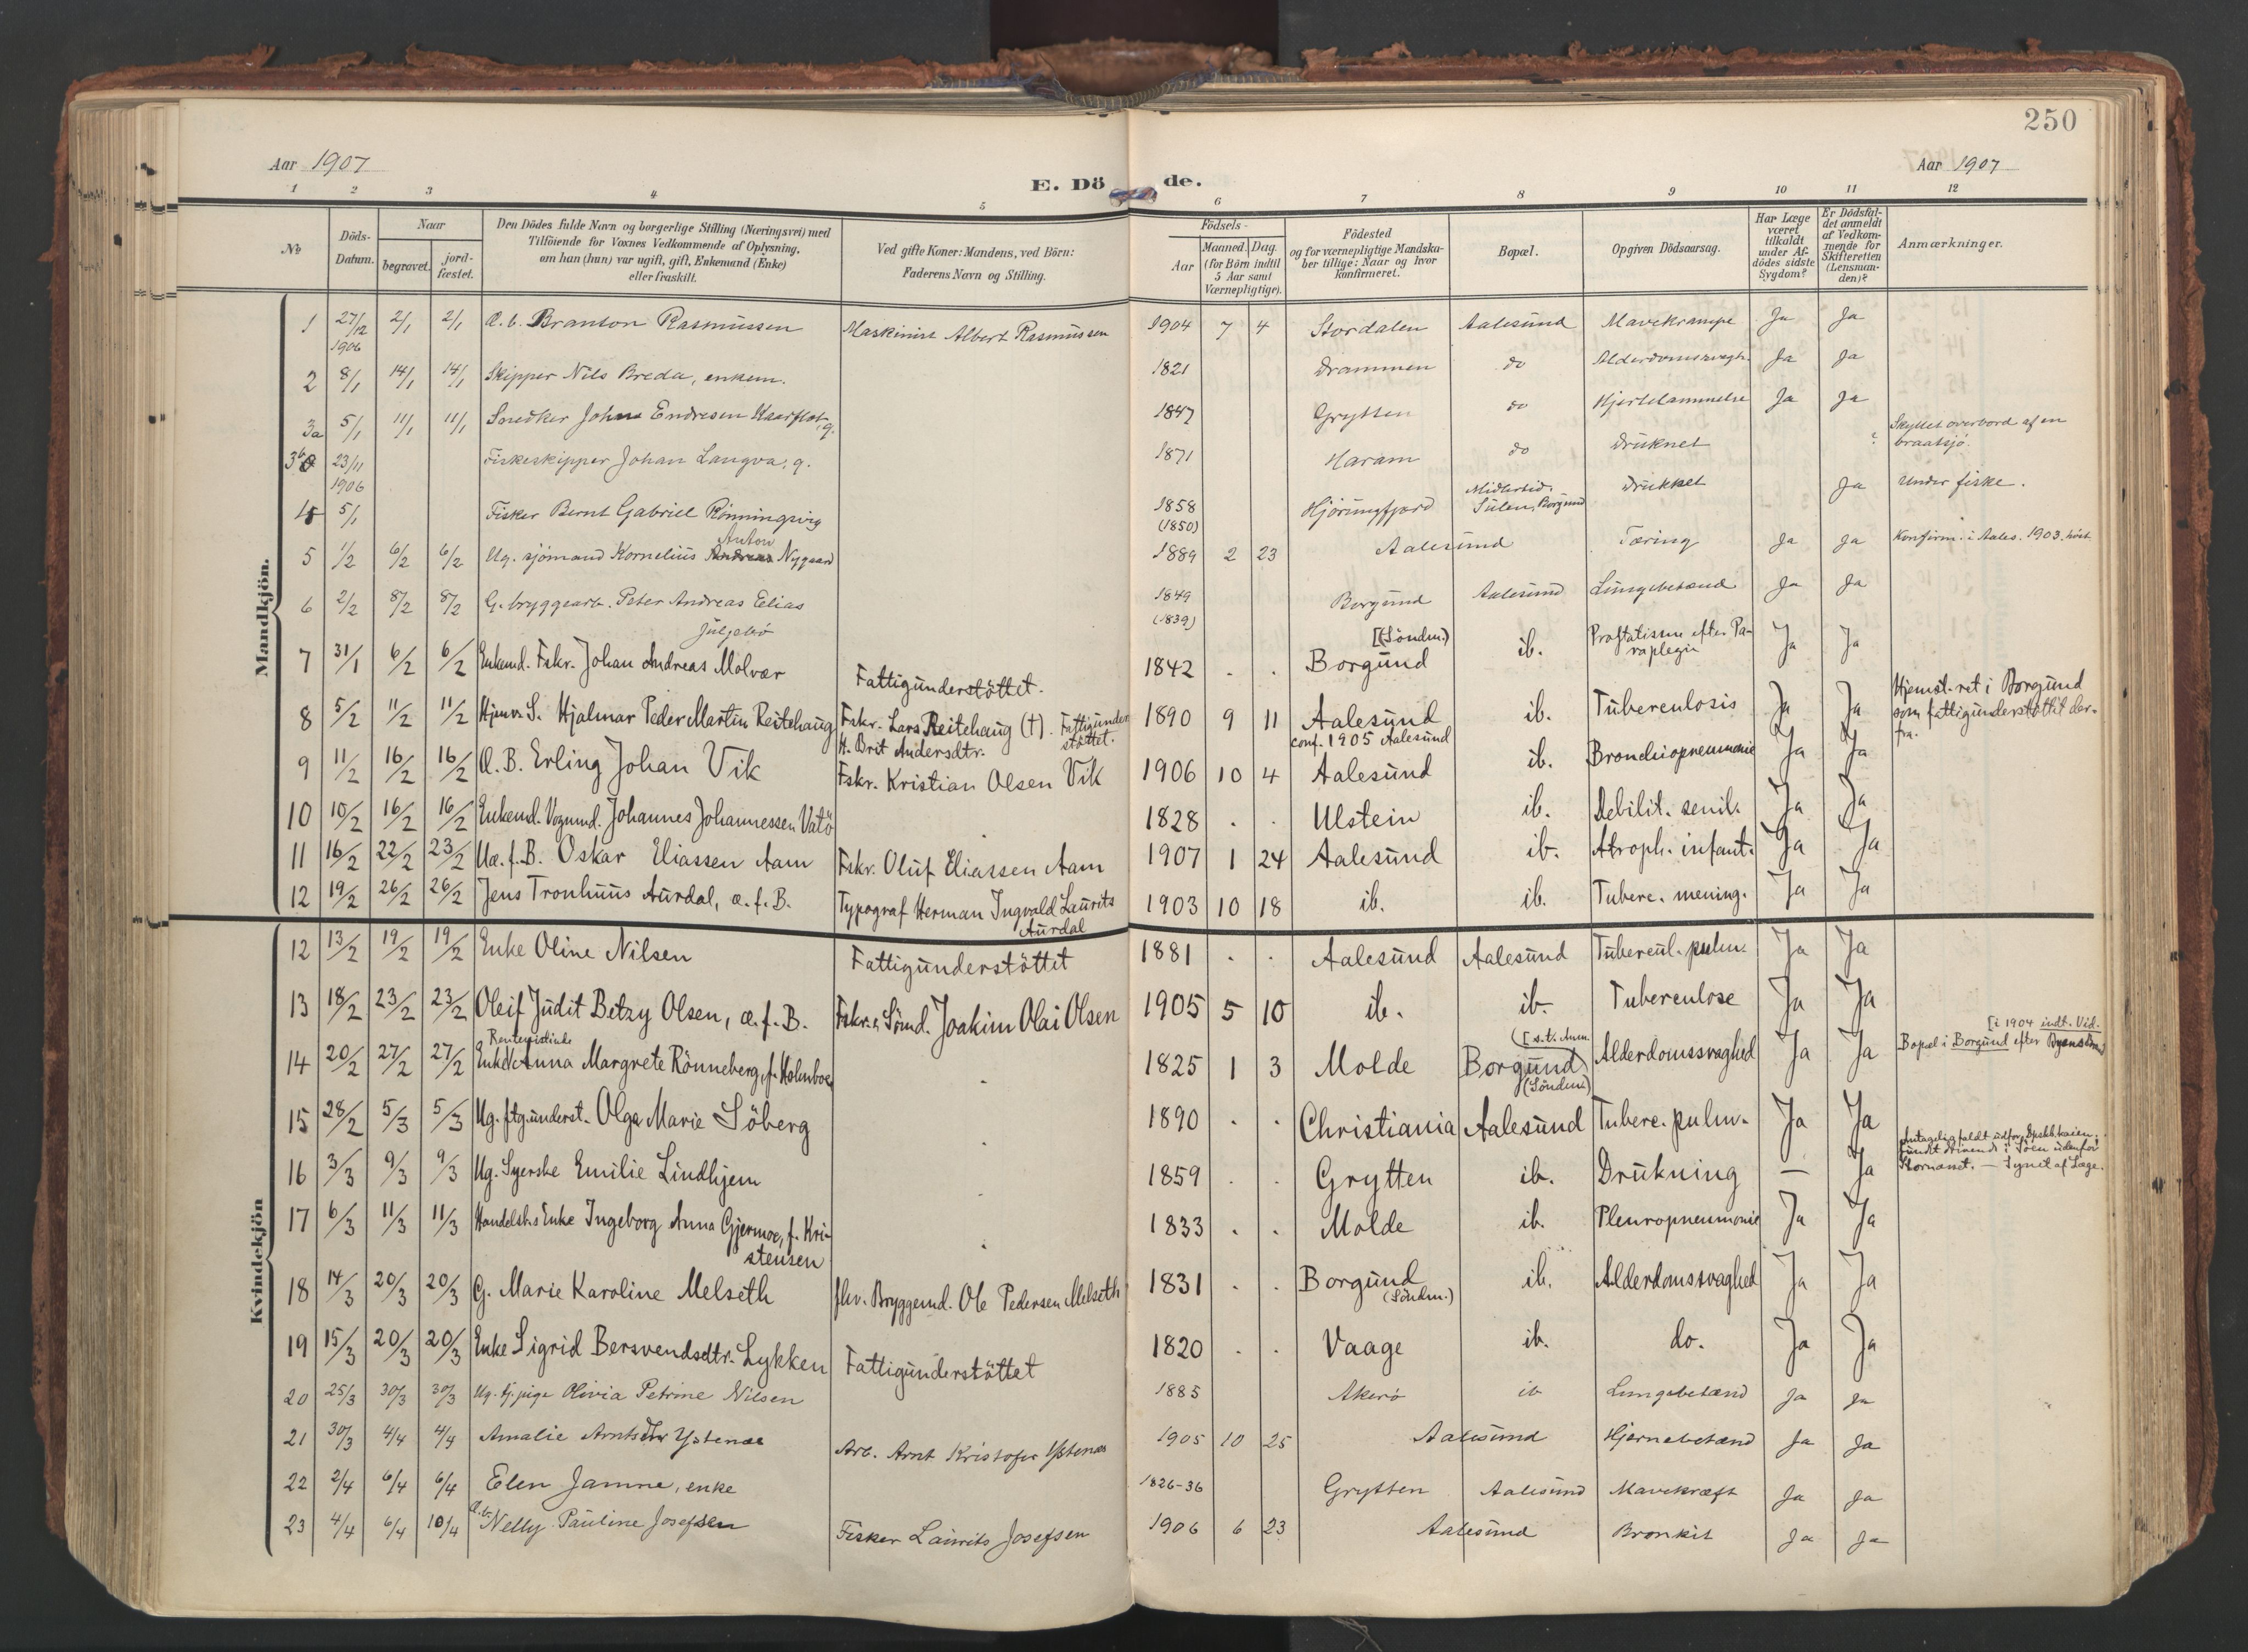 250
Aar 1907
E. Dö de.
Aar 1907
1 2 3 4 5 6 7 8 9 10 11 12
No
Döds-Datum.
Naar
begravet.
jord-fæstet.
Den Dödes fulde Navn og borgerlige Stilling (Næringsvei) med
Tilföiende for Voxnes Vedkommende af Oplysning,
om han (hun) var ugift, gift, Enkemand (Enke)
eller fraskilt.
Ved gifte Koner: Mandens, ved Börn:
Faderens Navn og Stilling.
Födsels-
Aar
Maaned. Dag.
(for Börn indtil
5 Aar samt
Værnepligtige).
Födested
og for værnepligtige Mandska-
ber tillige: Naar og hvor
konfirmeret.
Bopæl.
Opgiven Dödsaarsag.
Har Læge
været
tilkaldt
under Af-
dödes sidste
Sygdom?
Er Dödsfal-
det anmeldt
af Vedkom-
mende for
Skifteretten
(Lensman-
den)?
Anmærkninger.
Mandkjön.
1 27/12 1906 2/1 2/1 Æ. b. Branton Rasmussen Maskinist Albert Rasmussen 1904 7 4 Stordalen Aalesund Mavekrampe Ja Ja
2 8/1 14/1 14/1 Skipper Nils Breda, enkem. 1821 Drammen do Alderdomssvagh. Ja Ja
3a 5/1 11/1 11/1 Snedker John Endresen Kaarflot, g. 1847 Grytten do Hjertelammelse Ja Ja
3b 23/11 1906 Fiskeskipper Johan Langva, g. 1871 Haram do Druknet ? Skyllet overbord af en
braatsjö.
4 5/1 Fisker Bernt Gabriel Rönningsvig 1858 (1850) Hjörungfjord Midlertid. Sulen, Borgund Drukket Ja Under fiske.
5 1/2 6/2 6/2 Ug. sjömand Kornelius Andreas Anton Nygaard 1889 2 23 Aalesund Tæring Ja Ja Konfirm. i Aales. 1903. höst
6 2/2 8/2 8/2 G. bryggearb. Peter Andreas Elias
Julgebö 1849 (1839) Borgund Aalesund Lungebetænd Ja Ja
7 31/1 6/2 6/2 Enkemd. Fskr. Johan Andreas Molvær Fattigunderstöttet. 1842 . . [(Söndm.) Borgund ib. Prostatisme efter Pa-
raplegie Ja Ja
8 5/2 11/2 11/2 Hjemv. S. Hjalmar Peder Martin Reitehaug Fskr. Lars Reitehaug (†). Fattigunder
stöttet.
H. Brit Andersdtr. 1890 9 11 Aalesund
conf. 1905 Aalesund ib. Tuberculosis Ja Ja Hjemst. ret i Borgund
som fattigunderstöttet der-
fra.
9 11/2 16/2 16/2 Æ. B. Erling Johan Vik Fskr. Kristian Olsen Vik 1906 10 4 Aalesund ib. Bronchiopneumonie Ja Ja
10 10/2 16/2 16/2 Enkemd. Vognmd. Johannes Johannessen Vatö . 1828 . . Ulstein ib. Debilit. senil. Ja Ja
11 16/2 22/2 23/2 Uæ. f. B. Oskar Eliassen Aam Fskr. Oluf Eliassen Aam 1907 1 24 Aalesund ib. Atroph. infant. Ja Ja
12 19/2 26/2 26/2 Jens Tronhuus Aurdal, æ. f. B. Typograf Herman Ingvald Laurits
Aurdal 1903 10 18 ib. ib. Tuberc. mening. Ja Ja
Kvindekjön
12 13/2 19/2 19/2 Enke Oline Nilsen Fattigunderstöttet 1881 . . Aalesund Aalesund Tubercul. pulm. Ja Ja
13 18/2 23/2 23/2 Oleif Judit Betzy Olsen, æ. f. B. Fskr. & Sömd. Joakim Olai Olsen 1905 5 10 ib. ib. Tuberculose Ja Ja
14 20/2 27/2 27/2 Rentenistinde
Enke Anna Margrete Rönneberg, f. Holmboe . 1825 1 3 Molde ([s. t. Anm. Borgund (Söndm.) Alderdomssvaghed Ja Ja [i 1904 indt. Vid.
Bopæl i Borgund efter Byens Brand
15 28/2 5/3 5/3 Ug. ftg.underst. Olga Marie Söberg . 1890 . . Christiania Aalesund Tuberc. pulm. Ja Ja
16 3/3 9/3 9/3 Ug. Syerske Emilie Lindhjem . 1859 . . Grytten ib. Drukning — Ja Antagelig faldt udfor Dpskb.kaien;
fundet drivende i Söen udenfor
Skornæset. — Synet af Læge.
17 6/3 11/3 11/3 Handelsb.s Enke Ingeborg Anna Gjermoe, f. Kri-
stensen . 1833 . . Molde ib. Pleuropneumonie Ja Ja
18 14/3 20/3 20/3 G. Marie Karoline Melseth fhv. Bryggemd. Ole Pedersen Melseth 1831 . . Borgund
(Söndm.) ib. Alderdomssvaghed Ja Ja
19 15/3 20/3 20/3 Enke Sigrid Bersvendsdtr. Lykken Fattigunderstöttet 1820 . . Vaage ib. do. Ja Ja
20 25/3 30/3 30/3 Ug. tj. pige Olivia Petrine Nilsen 1885 Akerö ib Lungebetænd Ja Ja
21 30/3 4/4 4/4 Amalie Arntsdtr Ystenæs Arb. Arnt Kristofer Ystenæs 1905 10 25 Aalesund Hjernebetænd Ja Ja
22 2/4 6/4 6/4 Elen Jamne, enke 1826-36 Grytten Aalesund Mavekræft Ja Ja
23 4/4 6/4 10/4 Æ. b. Nelly Pauline Josefsen Fisker Laurits Josefsen 1906 6 23 Aalesund Bronkit Ja Ja